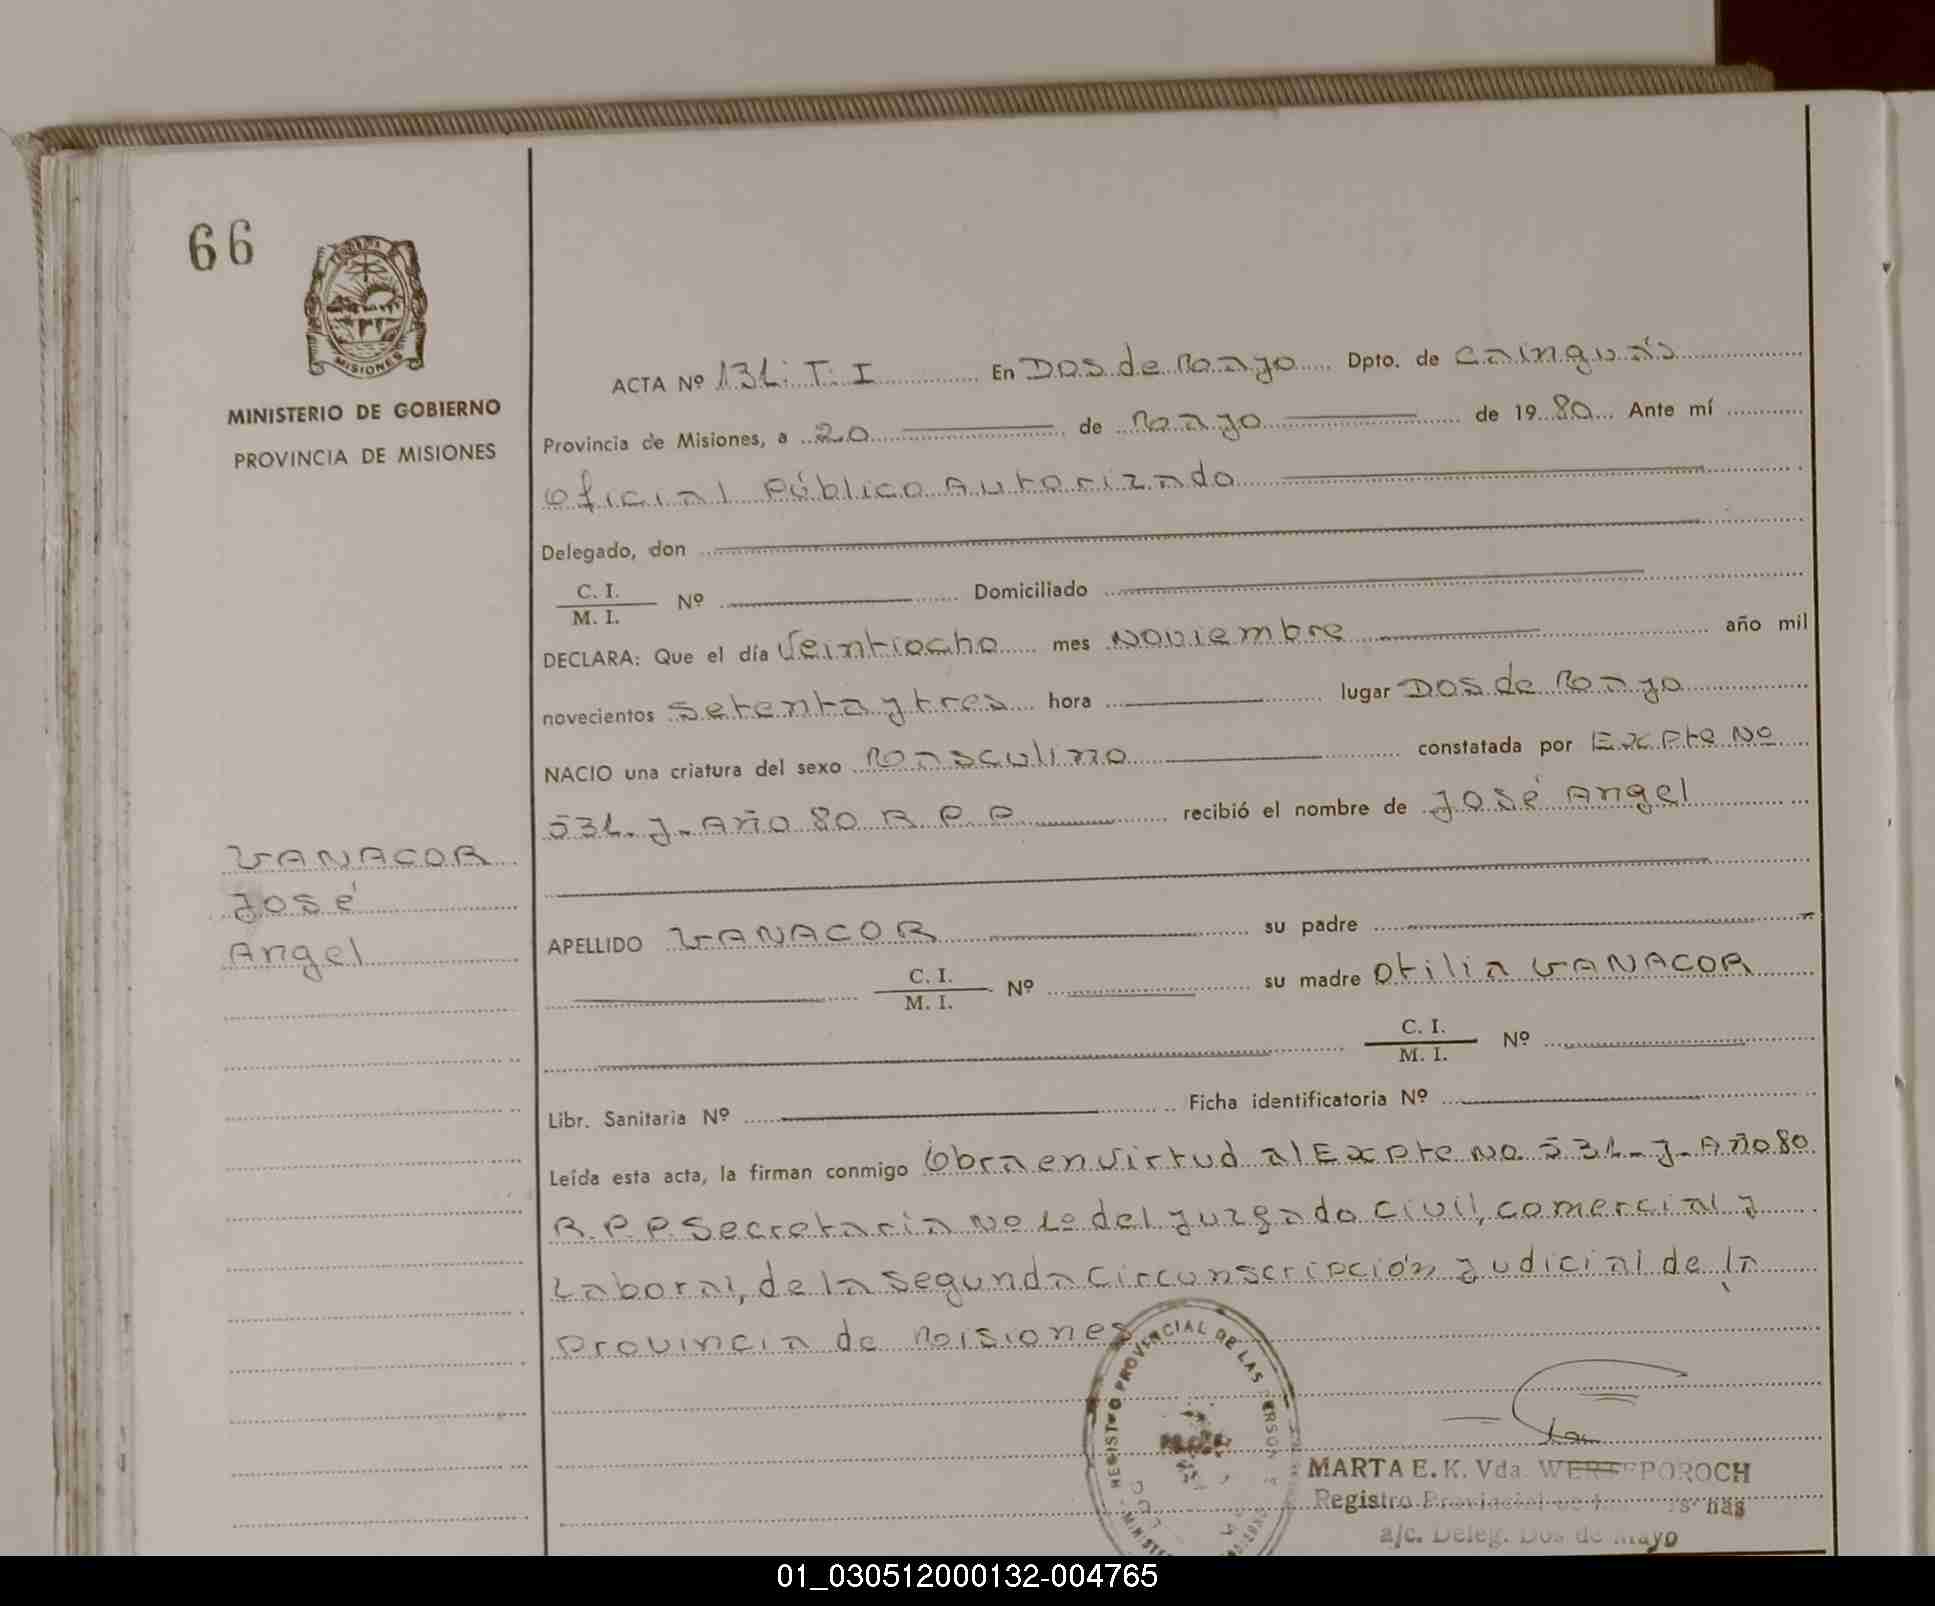 66
MISIONES
MINISTERIO DE GOBIERNO
PROVINCIA DE MISIONES
ACTA Nº 131. T. I En Dos de Mayo Dpto. de Cainguás
Provincia de Misiones, a 20 de Mayo de 1980 Ante mí
Oficial Público Autorizado
Delegado, don
C. I.
M. I. Nº Domiciliado
DECLARA: Que el día Veintiocho mes Noviembre año mil
novecientos setenta y tres hora lugar Dos de Mayo
NACIO una criatura del sexo Masculino constatada por Expte No
531- J- Año 80 R P P recibió el nombre de José Angel
VANACOR
José
Angel
APELLIDO VANACOR su padre
C. I.
M. I. Nº su madre Otilia VANACOR
C. I.
M. I. Nº
Libr. Sanitaria Nº Ficha identificatoria Nº
Leída esta acta, la firman conmigo Obra en Virtud al Expte No 531- J- Año 80
R.P.P. Secretaria No 1o del Juzgado civil, comercial y
Laboral, de la segunda circunscripción Judicial de la
Provincia de Misiones
REGISTRO PROVINCIAL DE LAS
MARTA E. K. Vda.
Registro Provincial
a/c. Deleg. Dos de Mayo
01_030512000132-004765